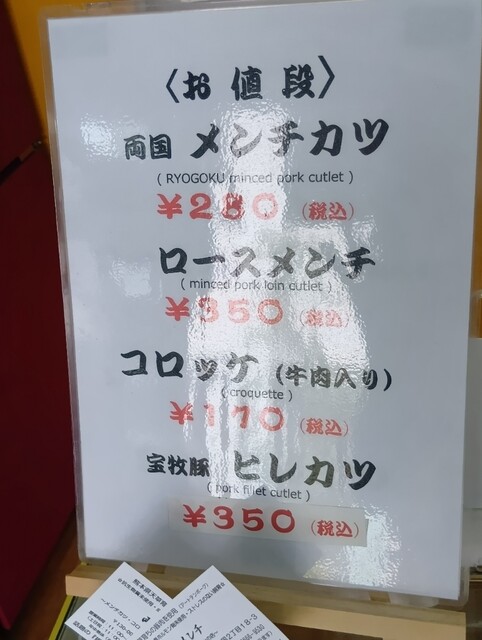 〈お値段〉
両国 メンチカツ
( RYOGOKU minced pork cutlet )
¥250 (税込)
ロースメンチ
( minced pork loin cutlet )
¥350 (税込)
コロッケ (牛肉入り)
( croquette )
¥170 (税込)
宝牧豚 ヒレカツ
( pork fillet cutlet )
¥350 (税込)